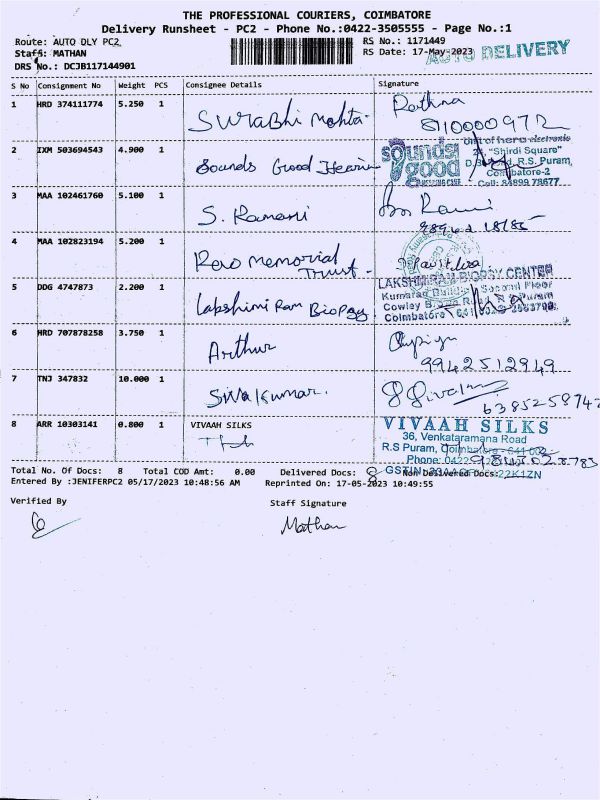 THE PROFESSIONAL COURIERS, COIMBATORE
Delivery Runsheet - PC2 - Phone No.:0422-3505555 - Page No.:1
Route: AUTO DLY PC2
RS No.: 1171449
Staff: MATHAN
RS Date: 17-May-2023
AUTO DELIVERY
DRS No.: DCJB117144901
S No Consignment No Weight PCS Consignee Details Signature
1 HRD 374111774 5.250 1 Surabhi Mehta. Rathna
8110000972
2 IXM 503694543 4.900 1 Sounds Good Hearin
sounds good
Unit of hera electronic
"Shirdi Square"
R.S. Puram,
Coimbatore-2
Cell: 84899 78677
3 MAA 102461760 5.100 1 S. Ramani
4 MAA 102823194 5.200 1 Memorial
Trust -
5 DDG 4747873 2.200 1 Lakshimi Ram Biopsy
LAKSHMIRAM BIOPSY CENTER
Kumaran Second Floor
Cowley Brown R Puram
Coimbatore 641
6 HRD 707878258 3.750 1 Arithur
9942512949
7 TNJ 347832 10.000 1 Siva Kumar.
638525874
8 ARR 10303141 0.800 1 VIVAAH SILKS
VIVAAH SILKS
36, Venkataramana Road
R.S Puram, Coimbatore - 641 002
Phone: 0422
GSTIN 22K1ZN
Total No. Of Docs: 8 Total COD Amt: 0.00 Delivered Docs: 8 Non Delivered Docs:
Entered By :JENIFERPC2 05/17/2023 10:48:56 AM Reprinted On: 17-05-2023 10:49:55
Verified By Staff Signature
Mathan